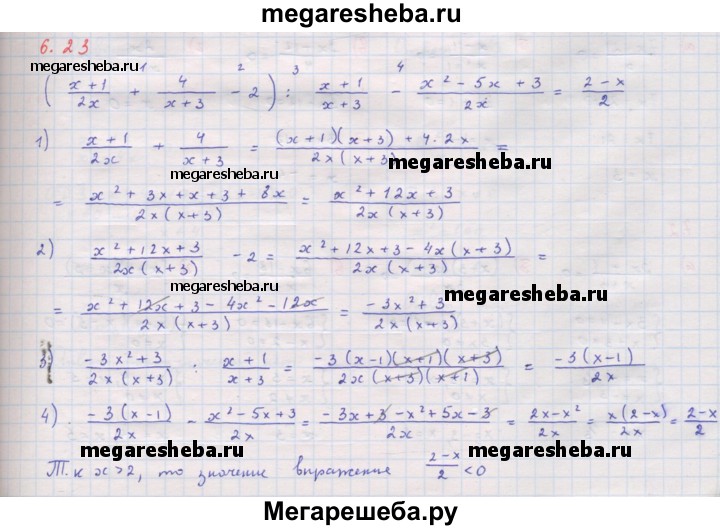 megaresheba.ru
6.23
megaresheba.ru
megaresheba.ru
1 2 3 4
( (x+1)/(2x) + 4/(x+3) - 2 ) : (x+1)/(x+3) - (x² - 5x + 3)/(2x) = (2-x)/2
1) (x+1)/(2x) + 4/(x+3) = ((x+1)(x+3) + 4·2x)/(2x(x+3)) =
megaresheba.ru
megaresheba.ru
= (x² + 3x + x + 3 + 8x)/(2x(x+3)) = (x² + 12x + 3)/(2x(x+3))
2) (x² + 12x + 3)/(2x(x+3)) - 2 = (x² + 12x + 3 - 4x(x+3))/(2x(x+3)) =
megaresheba.ru
megaresheba.ru
= (x² + 12x + 3 - 4x² - 12x)/(2x(x+3)) = (-3x² + 3)/(2x(x+3))
3) (-3x² + 3)/(2x(x+3)) : (x+1)/(x+3) = (-3(x-1)(x+1)(x+3))/(2x(x+3)(x+1)) = (-3(x-1))/(2x)
4) (-3(x-1))/(2x) - (x² - 5x + 3)/(2x) = (-3x + 3 - x² + 5x - 3)/(2x) = (2x - x²)/(2x) = (x(2-x))/(2x) = (2-x)/2
megaresheba.ru
megaresheba.ru
Т.к x>2, то значение выражения (2-x)/2 < 0
Мегарешеба.ру